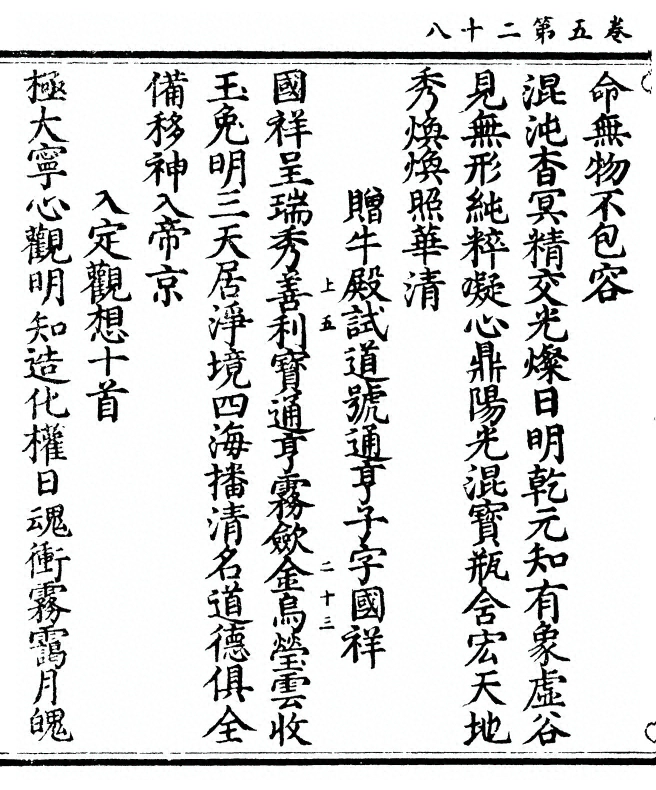 卷五第二十八
命無物不包容
混沌杳冥精交光燦日明乾元知有象虛谷
見無形純粹凝心鼎陽光混寶瓶含宏天地
秀煥煥照華清
贈牛殿試道號通亨子字國祥
上五
二十三
國祥呈瑞秀善利寶通亨霧歛金烏瑩雲收
玉兔明三天居淨境四海播清名道德俱全
備移神入帝京
入定觀想十首
極大寧心觀明知造化權日魂衝霧靄月魄